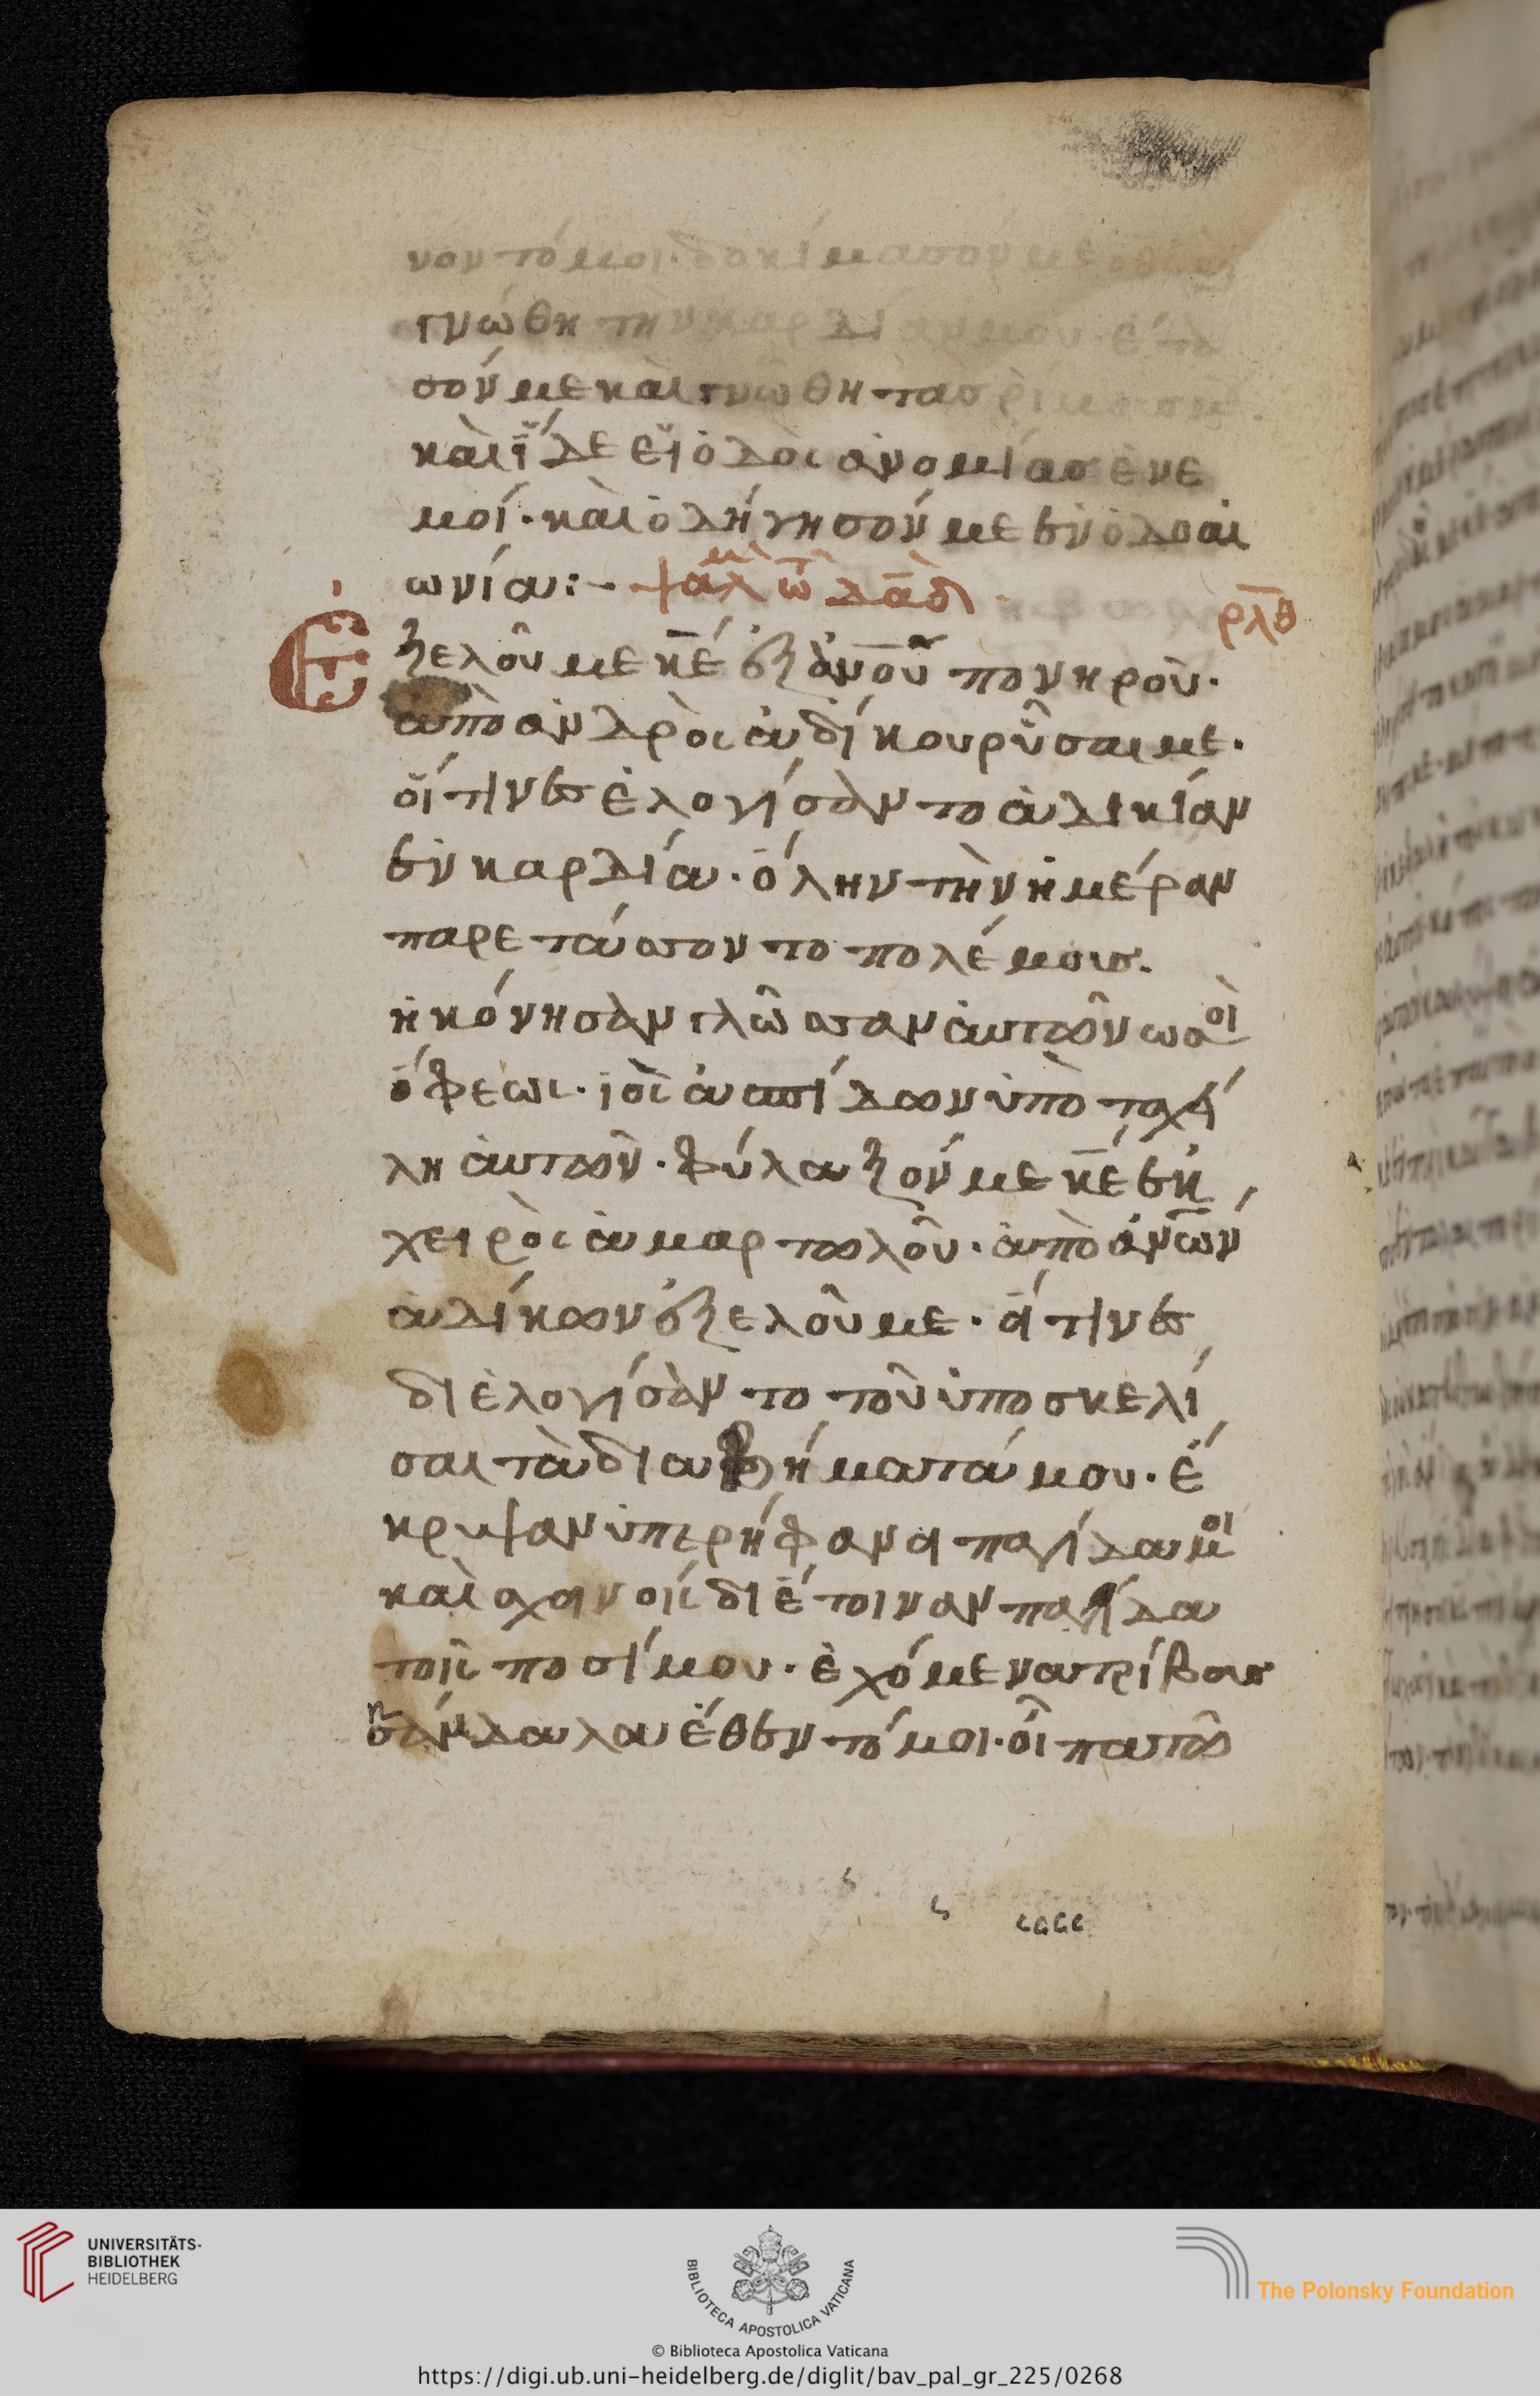 νοντό μοι. δοκίμασόν με ὁ θς καὶ
γνώθη τὴν καρδίαν μου. ἔτα
σόν με καὶ γνῶθη τασ τρίβουσ μου.
καὶ ἴ̈δε εἴ ὁδὸς ἀνομίασ ἐνε
μοί. καὶ ὁδήγησόν με ἐν ὁδο αἰ
ωνία:- ψαλμ τῶ δαδ. ρλθ
Ἐξελοῦ με κ̅έ ἐξ ἀν̅οῦ πονηροῦ.
ἀπὸ ἀνδρὸς ἀδίκου ρῦσαι με.
οἵτινεσ ἐλογίσαντο ἀδικίαν
ἐν καρδία. ὅλην τὴν ἡμέραν
παρετάσσοντο πολέμοισ.
ἠκόνησαν γλῶσσαν ἀυτῶν ωσοὶ
ὄφεως. ἰὸς ἀσπίδων ὑπὸ τα χεί
λη ἀυτῶν. φύλαξόν με κ̅έ ἐκ
χειρὸς ἁμαρτωλοῦ. ἀπὸ ἀν̅ων
ἀδίκων ἐξελοῦ με. οἵτινεσ
διελογίσαντο τοῦ ὑποσκελί
σαι τὰ διαβήματά μου. ἔ
κρυψαν ὑπερήφανοι παγίδα μοι
καὶ σχοινοῖς διέτειναν παγίδα
τοῖς ποσί μου. ἐχόμενα τρίβουσ
σκάνδαλα ἔθεντό μοι. εἶπα τῶ
cacc
UNIVERSITÄTS-
BIBLIOTHEK
HEIDELBERG
BIBLIOTECA APOSTOLICA VATICANA
The Polonsky Foundation
© Biblioteca Apostolica Vaticana
https://digi.ub.uni-heidelberg.de/diglit/bav_pal_gr_225/0268